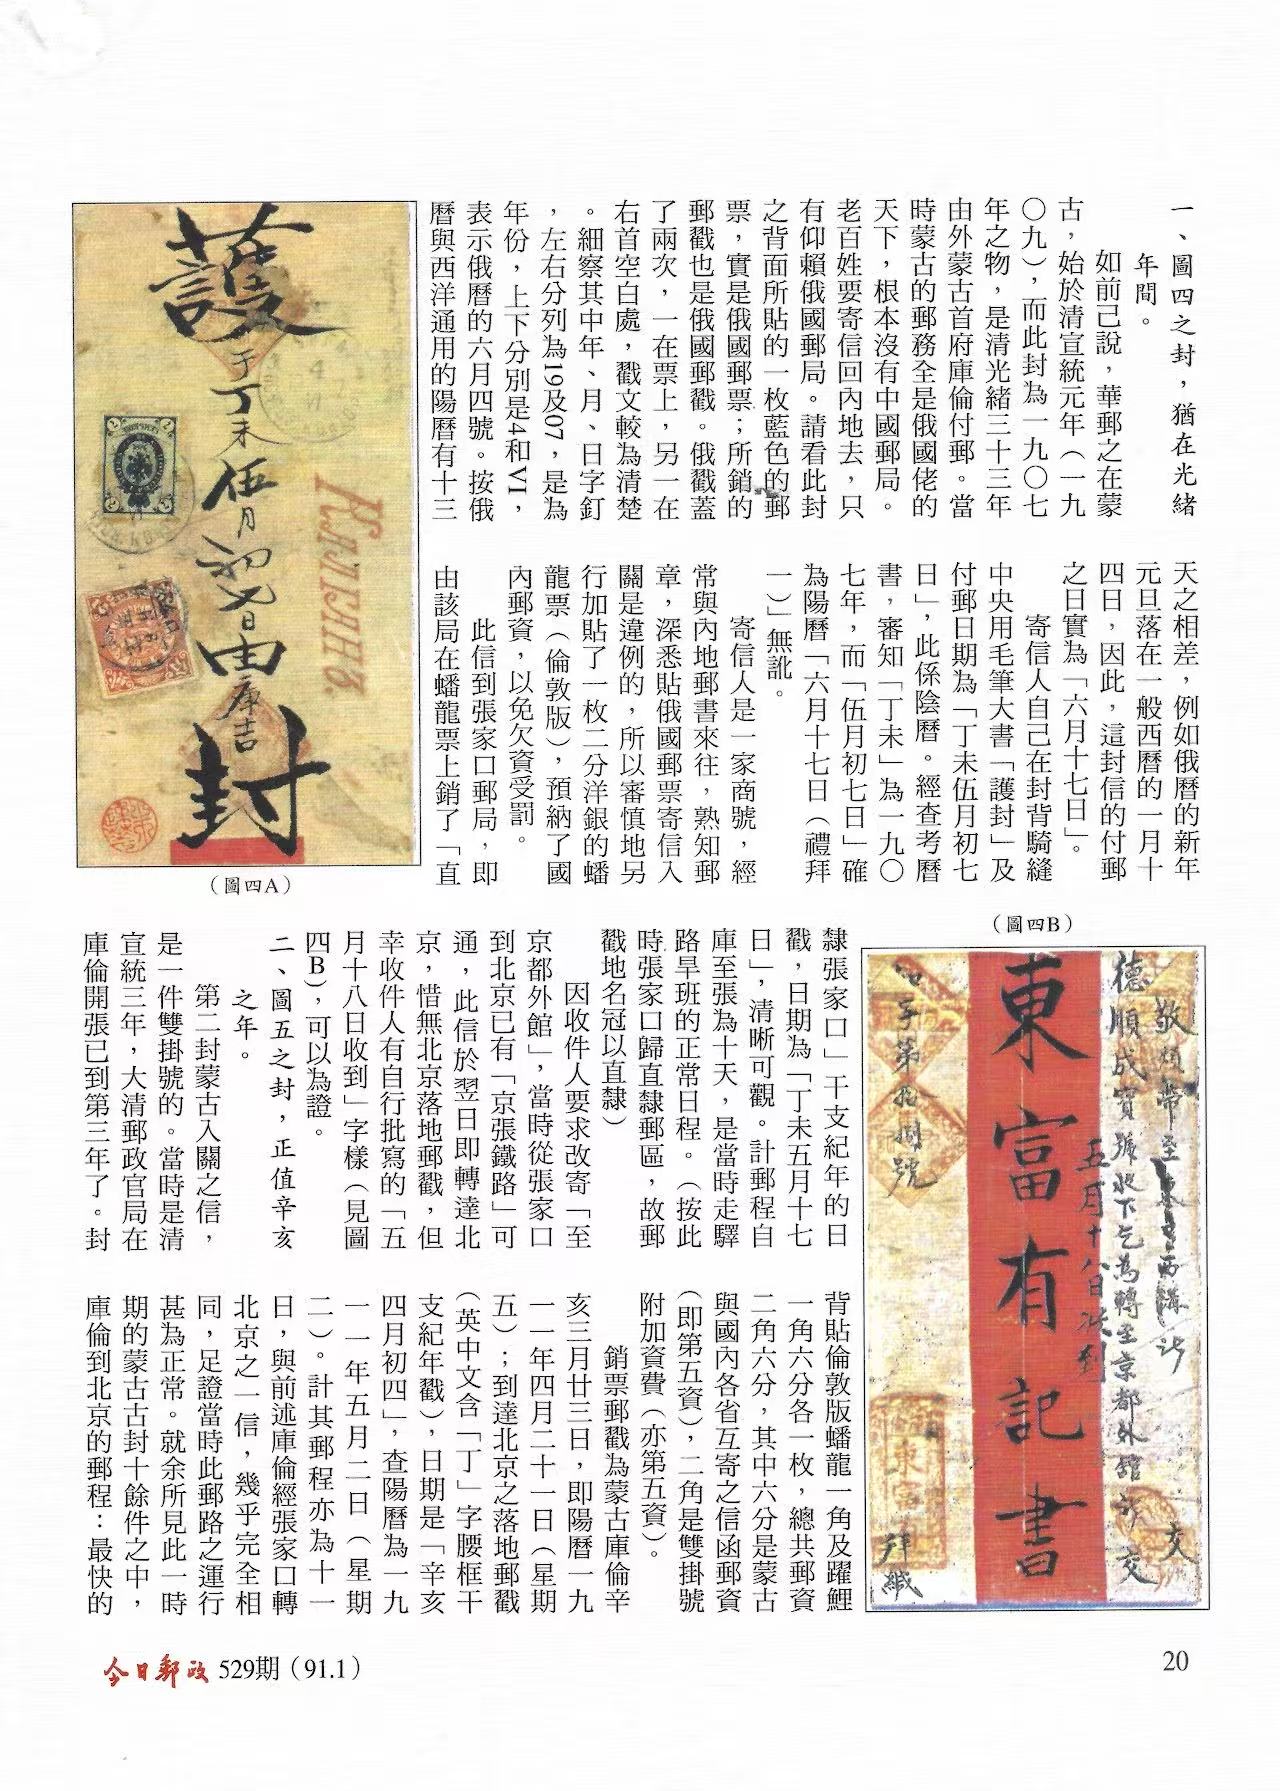 一、圖四之封，猶在光緒
年間。
如前已說，華郵之在蒙
古，始於清宣統元年（一九
〇九），而此封為一九〇七
年之物，是清光緒三十三年
由外蒙古首府庫倫付郵。當
時蒙古的郵務全是俄國佬的
天下，根本沒有中國郵局。
老百姓要寄信回內地去，只
有仰賴俄國郵局。請看此封
之背面所貼的一枚藍色的郵
票，實是俄國郵票；所銷的
郵戳也是俄國郵戳。俄戳蓋
了兩次，一在票上，另一在
右首空白處，戳文較為清楚
。細察其中年、月、日字釘
，左右分列為19及07，是為
年份，上下分別是4和VI，
表示俄曆的六月四號。按俄
曆與西洋通用的陽曆有十三
天之相差，例如俄曆的新年
元旦落在一般西曆的一月十
四日，因此，這封信的付郵
之日實為「六月十七日」。
寄信人自己在封背騎縫
中央用毛筆大書「護封」及
付郵日期為「丁未伍月初七
日」，此係陰曆。經查考曆
書，審知「丁未」為一九〇
七年，而「伍月初七日」確
為陽曆「六月十七日（禮拜
一）」無訛。
寄信人是一家商號，經
常與內地郵書來往，熟知郵
章，深悉貼俄國郵票寄信入
關是違例的，所以審慎地另
行加貼了一枚二分洋銀的蟠
龍票（倫敦版），預納了國
內郵資，以免欠資受罰。
此信到張家口郵局，即
由該局在蟠龍票上銷了「直
護
于丁未伍月初七日由庫吉
封
（圖四A）
（圖四B）
敬煩帶至
德順成寶號收下乞為轉至京都外館
交
五月十八日收到
東富有記書
字第拾捌號
拜緘
隸張家口」干支紀年的日
戳，日期為「丁未五月十七
日」，清晰可觀。計郵程自
庫至張為十天，是當時走驛
路旱班的正常日程。（按此
時張家口歸直隸郵區，故郵
戳地名冠以直隸）
因收件人要求改寄「至
京都外館」，當時從張家口
到北京已有「京張鐵路」可
通，此信於翌日即轉達北
京，惜無北京落地郵戳，但
幸收件人有自行批寫的「五
月十八日收到」字樣（見圖
四B），可以為證。
二、圖五之封，正值辛亥
之年。
第二封蒙古入關之信，
是一件雙掛號的。當時是清
宣統三年，大清郵政官局在
庫倫開張已到第三年了。封
背貼倫敦版蟠龍一角及躍鯉
一角六分各一枚，總共郵資
二角六分，其中六分是蒙古
與國內各省互寄之信函郵資
（即第五資），二角是雙掛號
附加資費（亦第五資）。
銷票郵戳為蒙古庫倫辛
亥三月廿三日，即陽曆一九
一一年四月二十一日（星期
五）；到達北京之落地郵戳
（英中文含「丁」字腰框干
支紀年戳），日期是「辛亥
四月初四」，查陽曆為一九
一一年五月二日（星期
二）。計其郵程亦為十一
日，與前述庫倫經張家口轉
北京之一信，幾乎完全相
同，足證當時此郵路之運行
甚為正常。就余所見此一時
期的蒙古古封十餘件之中，
庫倫到北京的郵程：最快的
今日郵政 529期（91.1）
20